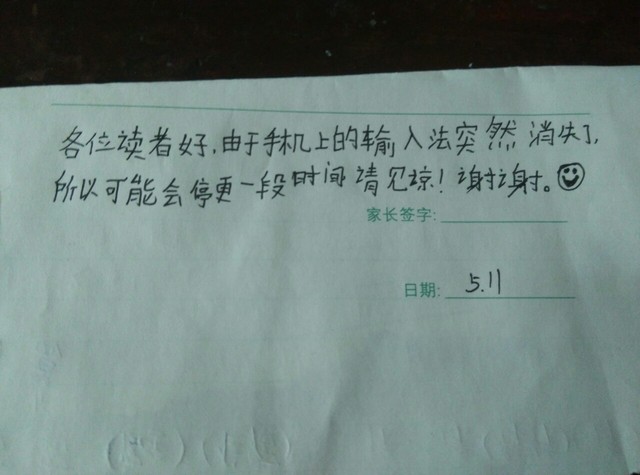 各位读者好，由于手机上的输入法突然消失了，
所以可能会停更一段时间请见谅！谢谢。
家长签字：
日期：5.11